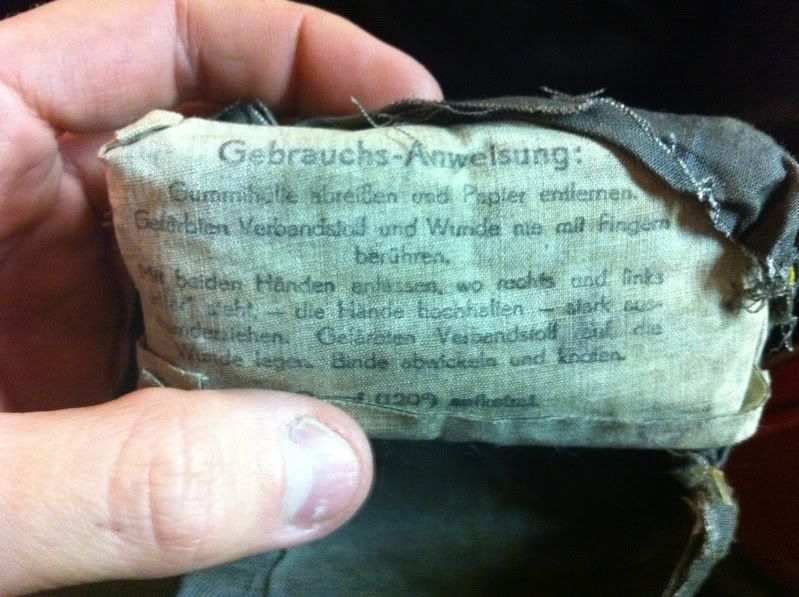 Gebrauchs-Anweisung:
Gummihülle abreißen und Papier entfernen.
Gefärbten Verbandstoff und Wunde nie mit Fingern
berühren.
Mit beiden Händen anfassen, wo rechts und links
steht, – die Hände hochhalten – stark aus-
einanderziehen. Gefärbten Verbandstoff auf die
Wunde legen. Binde abwickeln und knoten.
(120°)